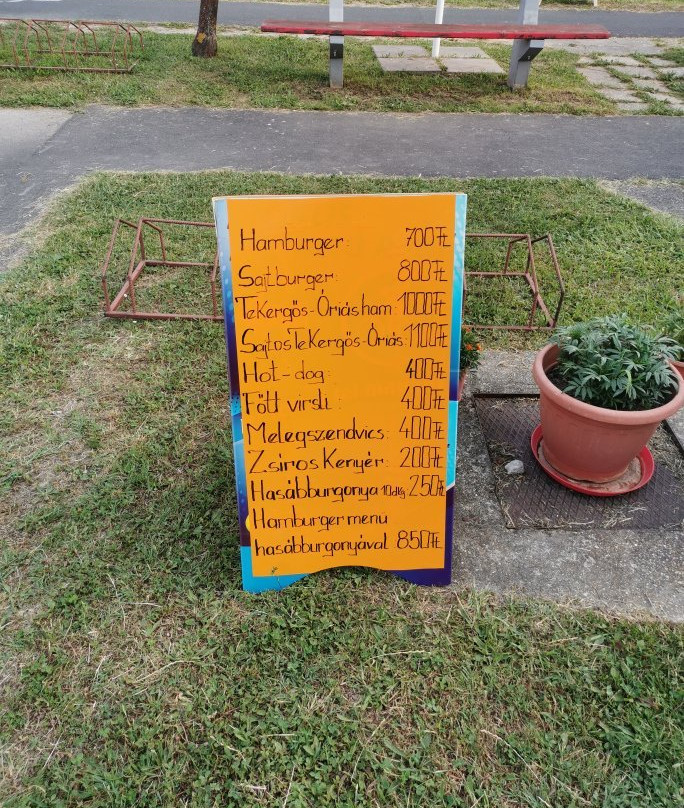 Hamburger: 700Ft
Sajtburger: 800Ft
TeKergős-Óriás ham: 1000Ft
SajtosTeKergős-Óriás: 1100Ft
Hot-dog: 400Ft
Főtt virsli: 400Ft
Melegszendvics: 400Ft
Zsíros Kenyér: 200Ft
Hasábburgonya 10dkg: 250Ft
Hamburger menü
hasábburgonyával 850Ft